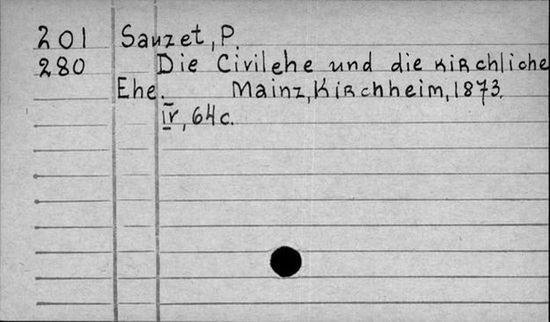 201 Sauzet, P.
280 Die Civilehe und die kirchliche
Ehe. Mainz, Kirchheim, 1873.
IV, 64c.